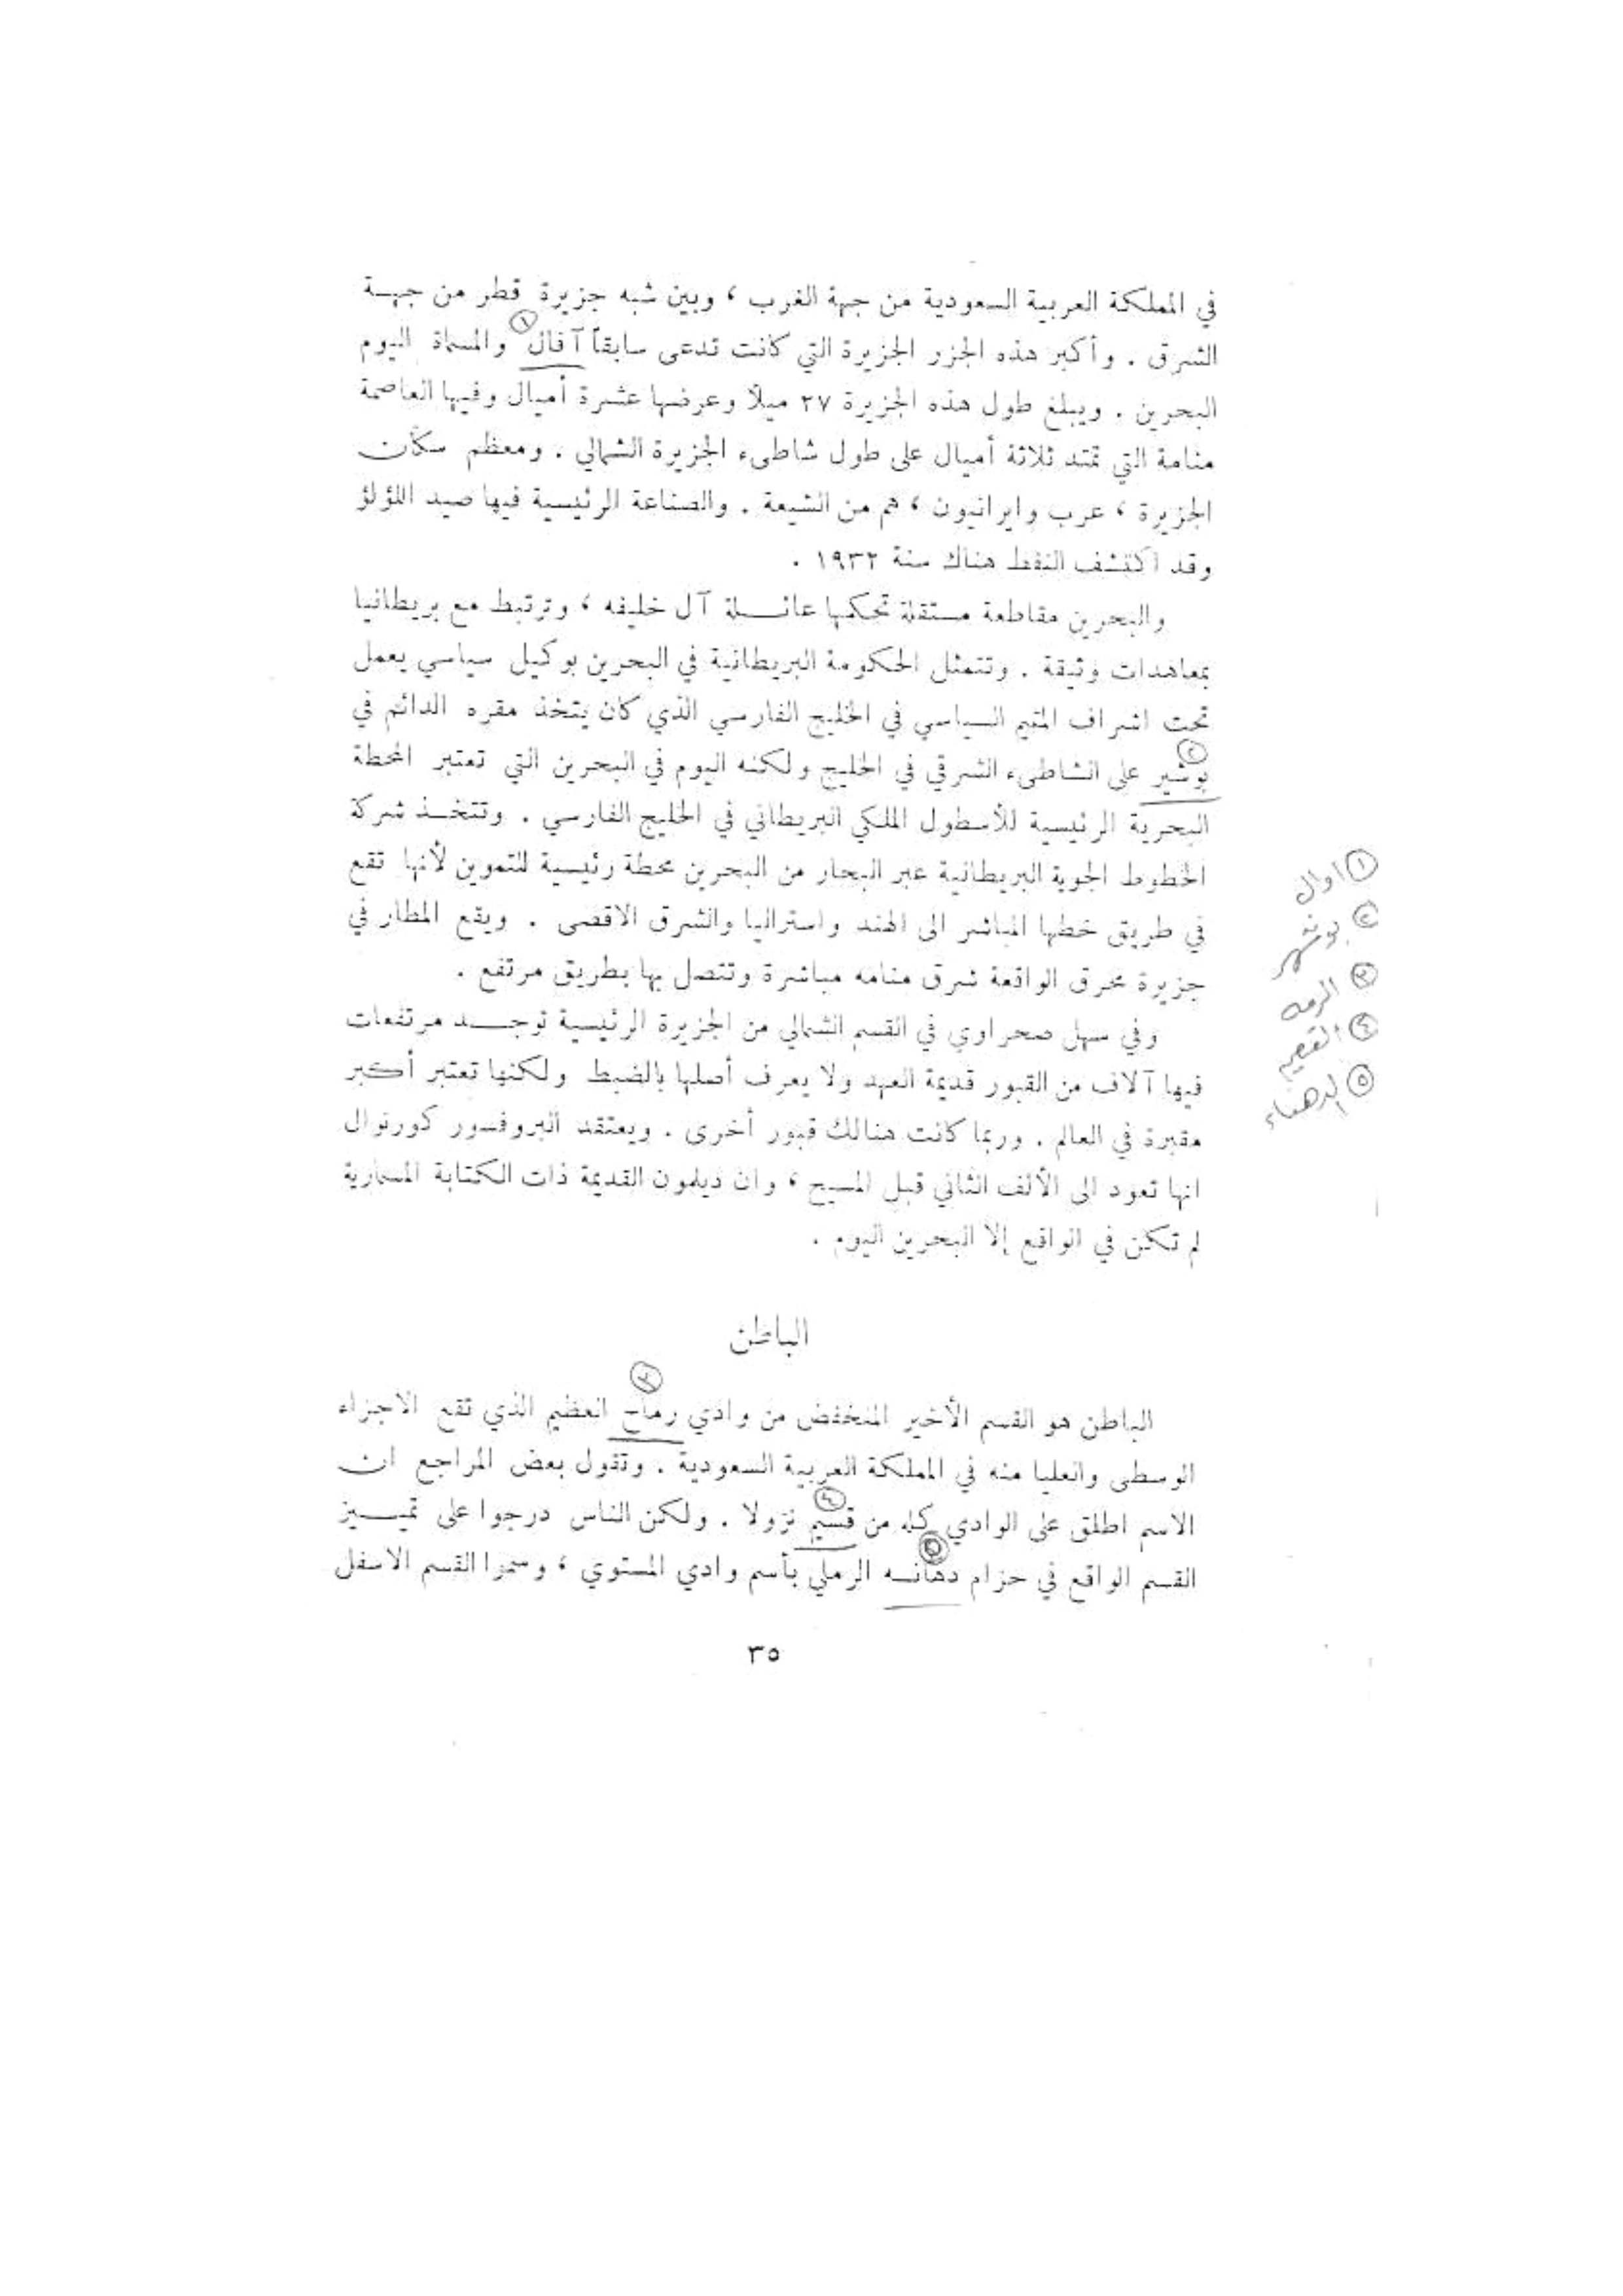 في المملكة العربية السعودية من جهة الغرب ، وبين شبه جزيرة قطر من جهـــة
الشرق . وأكبر هذه الجزر الجزيرة التي كانت تدعى سابقاً آفال ① والمسماة اليوم
البحرين . ويبلغ طول هذه الجزيرة ٢٧ ميلا وعرضها عشرة أميال وفيها العاصمة
منامة التي تمتد ثلاثة أميال على طول شاطىء الجزيرة الشمالي . ومعظم سكان
الجزيرة ، عرب وايرانيون ، هم من الشيعة . والصناعة الرئيسية فيها صيد اللؤلؤ
وقد اكتشف النفط هناك سنة ١٩٣٢ .
والبحرين مقاطعة مستقلة تحكمها عائـــلة آل خليفه ، وترتبط مع بريطانيا
بمعاهدات وثيقة . وتتمثل الحكومة البريطانية في البحرين بوكيل سياسي يعمل
تحت اشراف المقيم السياسي في الخليج الفارسي الذي كان يتخذ مقره الدائم في
بوشير ② على الشاطىء الشرقي في الخليج ولكنه اليوم في البحرين التي تعتبر المحطة
البحرية الرئيسية للأسطول الملكي البريطاني في الخليج الفارسي . وتتخـــذ شركة
الخطوط الجوية البريطانية عبر البحار من البحرين محطة رئيسية للتموين لأنها تقع
في طريق خطها المباشر الى الهند واستراليا والشرق الاقصى . ويقع المطار في
جزيرة محرق الواقعة شرق منامه مباشرة وتتصل بها بطريق مرتفع .
وفي سهل صحراوي في القسم الشمالي من الجزيرة الرئيسية توجـــد مرتفعات
فيها آلاف من القبور قديمة العهد ولا يعرف أصلها بالضبط ولكنها تعتبر أكبر
مقبرة في العالم . وربما كانت هنالك قبور أخرى . ويعتقد البروفسور كورنوال
انها تعود الى الألف الثاني قبل المسيح ، وان ديلمون القديمة ذات الكتابة المسمارية
لم تكن في الواقع إلا البحرين اليوم .
الباطن
الباطن هو القسم الأخير المنخفض من وادي رماح ③ العظيم الذي تقع الاجزاء
الوسطى والعليا منه في المملكة العربية السعودية . وتقول بعض المراجع ان
الاسم اطلق على الوادي كله من قسيم ④ نزولا . ولكن الناس درجوا على تميـــيز
القسم الواقع في حزام دهانـــه ⑤ الرملي بأسم وادي المستوي ، وسموا القسم الاسفل
٣٥
① اوال
② بوشهر
③ الرمه
④ القصيم
⑤ الدهناء